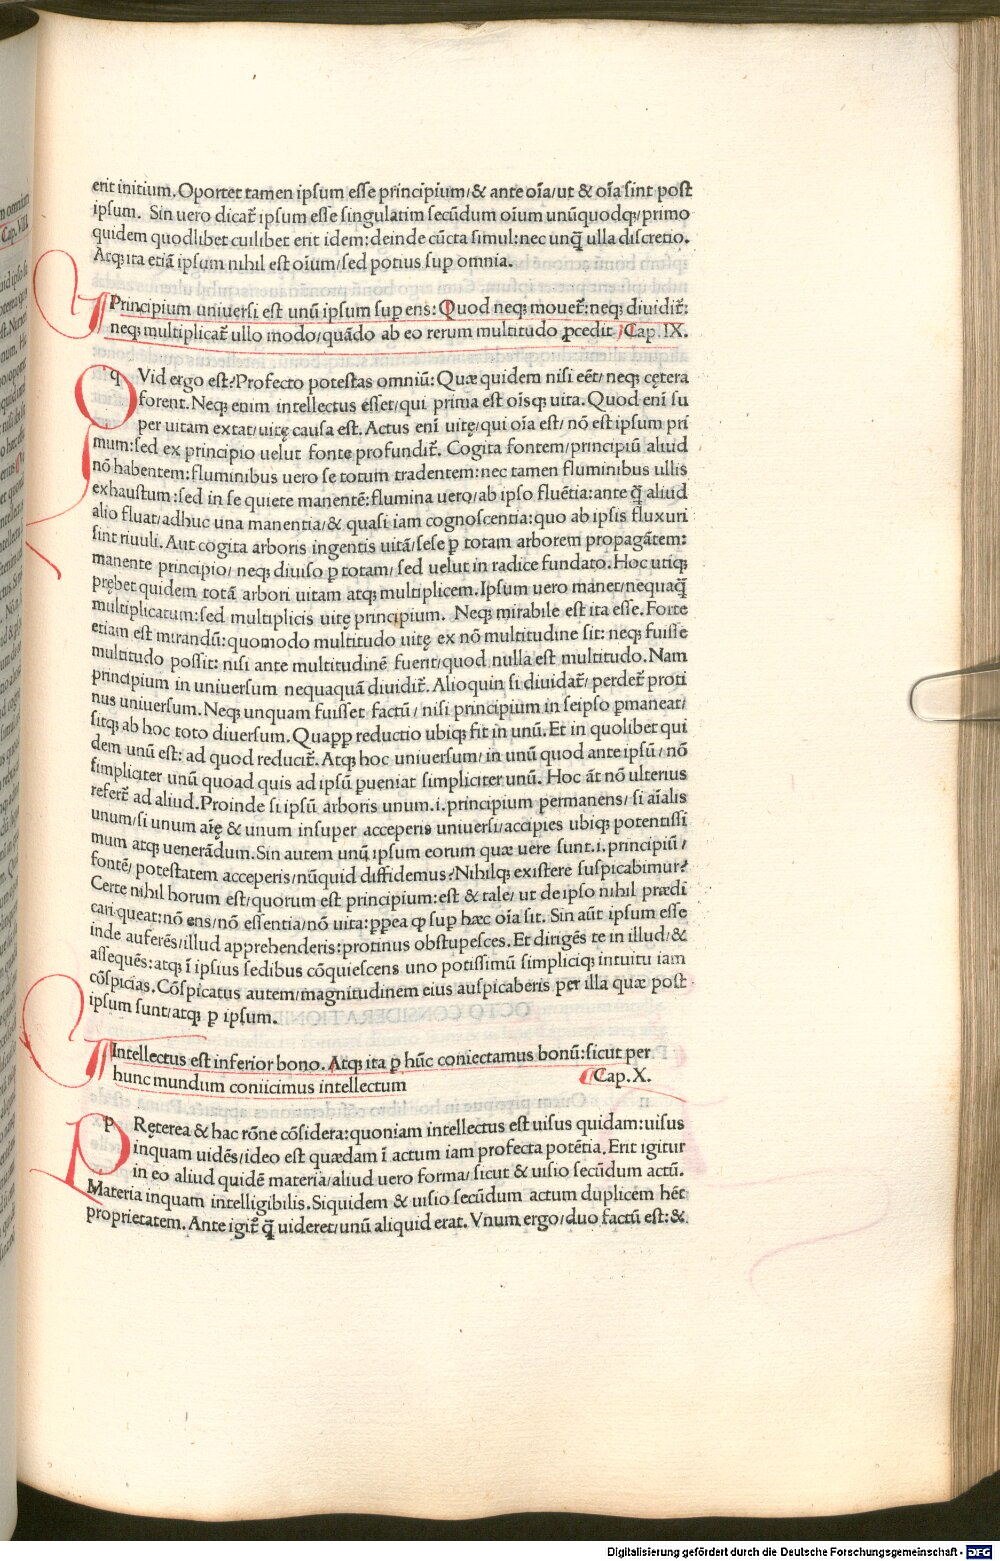 erit initium. Oportet tamen ipsum esse principium/& ante oīa/ut & oīa sint post
ipsum. Sin uero dicat̄ ipsum esse singulatim secūdum oīum unūquodq;/primo
quidem quodlibet cuilibet erit idem:deinde cūcta simul:nec unq̄ ulla discretio.
Atq;ita etiā ipsum nihil est oīum/sed potius sup omnia.
Principium uniuersi est unū ipsum sup ens: Quod neq; mouet̄:neq; diuidit̄:
neq; multiplicat̄ ullo modo/quādo ab eo rerum multitudo ꝓcedit Cap. IX.
q Vid ergo est?Profecto potestas omniū: Quæ quidem nisi eēt/ neq; cętera
forent. Neq; enim intellectus esset/qui prima est oīsq; uita. Quod enī su
per uitam extat/uitę causa est. Actus enī uitę/qui oīa est/ nō est ipsum pri
mum:sed ex principio uelut fonte profundit̄. Cogita fontem/principiū aliud
nō habentem:fluminibus uero se totum tradentem:nec tamen fluminibus ullis
exhaustum:sed in se quiete manentē:flumina uero/ab ipso fluētia:ante q̄ aliud
alio fluat/adhuc una manentia/& quasi iam cognoscentia:quo ab ipsis fluxuri
sint riuuli. Aut cogita arboris ingentis uitā/sese ꝑ totam arborem propagātem:
manente principio/ neq; diuiso ꝑ totam/ sed uelut in radice fundato. Hoc utiq;
prębet quidem totā arbori uitam atq; multiplicem. Ipsum uero manet/nequaq̄
multiplicatum:sed multiplicis uitę principium. Neq; mirabile est ita esse. Forte
etiam est mirandū:quomodo multitudo uitę ex nō multitudine sit: neq; fuisse
multitudo possit: nisi ante multitudinē fuerit/quod nulla est multitudo. Nam
principium in uniuersum nequaquā diuidit̄. Alioquin si diuidat̄/ perdet̄ proti
nus uniuersum. Neq; unquam fuisset factū/ nisi principium in seipso ꝑmaneat/
sitq; ab hoc toto diuersum. Quapp reductio ubiq; fit in unū. Et in quolibet qui
dem unū est: ad quod reducit̄. Atq; hoc uniuersum/ in unū quod ante ipsū/ nō
simpliciter unū quoad quis ad ipsū ꝑueniat simpliciter unū. Hoc āt nō ulterius
refert̄ ad aliud. Proinde si ipsū arboris unum.i.principium permanens/ si aīalis
unum/si unum aīę & unum insuper acceperis uniuersi/accipies ubiq; potentissi
mum atq; uenerādum. Sin autem unū ipsum eorum quæ uere sunt.i.principiū/
fontē/ potestatem acceperis/nūquid diffidemus?Nihilq; existere suspicabimur?
Certe nihil horum est/quorum est principium:est & tale/ ut de ipso nihil prædi
cari queat:nō ens/nō essentia/nō uita:ꝓpea ꝙ sup hæc oīa sit. Sin aūt ipsum esse
inde auferēs/illud apprehenderis:protinus obstupesces. Et dirigēs te in illud/&
assequēs:atq; ī ipsius sedibus cōquiescens uno potissimū simpliciq; intuitu iam
cōspicias. Cōspicatus autem/magnitudinem eius auspicaberis per illa quæ post
ipsum sunt/atq; ꝑ ipsum.
Intellectus est inferior bono. Atq; ita ꝑ hūc coniectamus bonū:sicut per
hunc mundum coniicimus intellectum Cap. X.
P Ręterea & hac rōne cōsidera:quoniam intellectus est uisus quidam:uisus
inquam uidēs/ideo est quædam ī actum iam profecta potētia. Erit igitur
in eo aliud quidē materia/aliud uero forma/ sicut & uisio secūdum actū.
Materia inquam intelligibilis. Siquidem & uisio secūdum actum duplicem hēt
proprietatem. Ante igit̄ q̄ uideret/unū aliquid erat. Vnum ergo/duo factū est:&
Digitalisierung gefördert durch die Deutsche Forschungsgemeinschaft - DFG